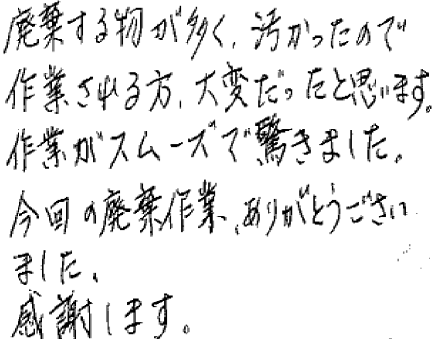 廃棄する物が多く、汚かったので
作業される方、大変だったと思います。
作業がスムーズで驚きました。
今回の廃棄作業、ありがとうござい
ました、
感謝します。